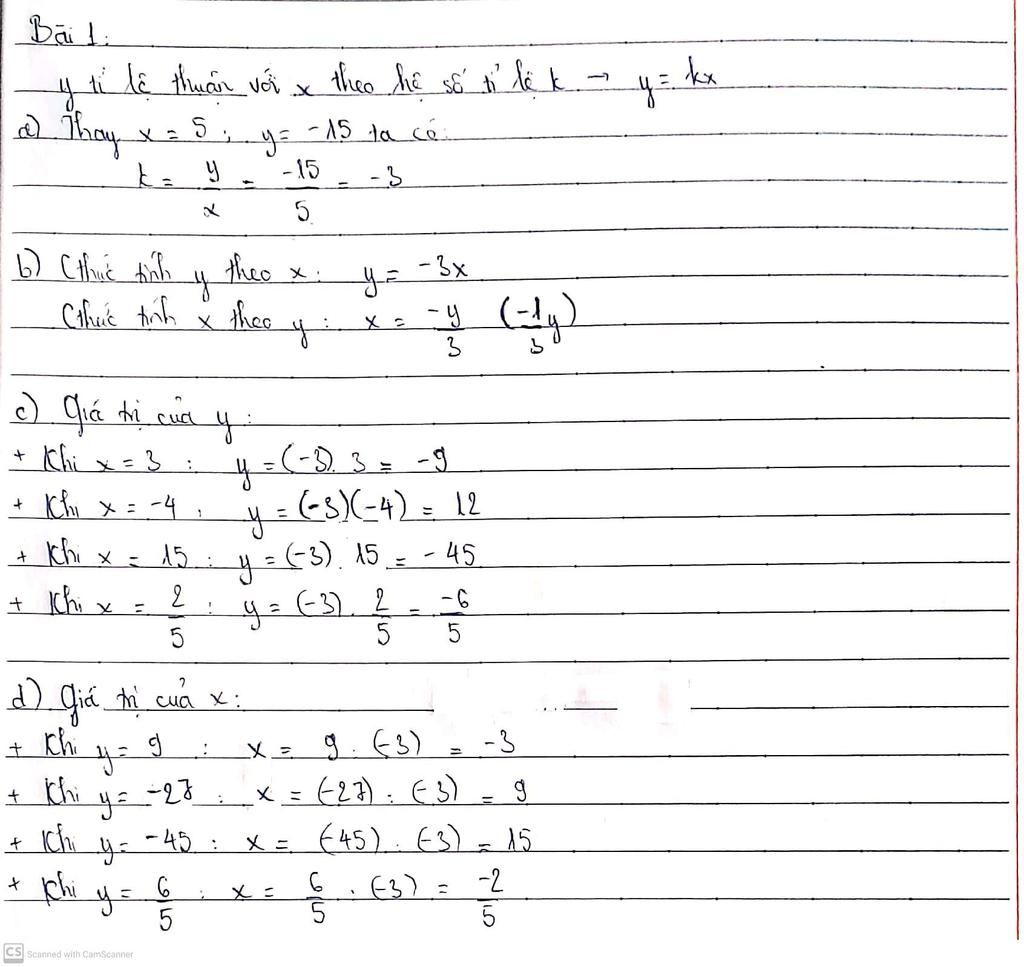 Bài 1:
y tỉ lệ thuận với x theo hệ số tỉ lệ k → y = kx
a) Thay x = 5 ; y = -15 ta có:
k = y/x = -15/5 = -3
b) Cthức tính y theo x: y = -3x
Cthức tính x theo y : x = -y/3 (-1/3 y)
c) Giá trị của y :
+ Khi x = 3 : y = (-3). 3 = -9
+ Khi x = -4 : y = (-3)(-4) = 12
+ Khi x = 15 : y = (-3). 15 = -45
+ Khi x = 2/5 : y = (-3). 2/5 = -6/5
d) Giá trị của x :
+ Khi y = 9 : x = 9 : (-3) = -3
+ Khi y = -27 : x = (-27) : (-3) = 9
+ Khi y = -45 : x = (-45) : (-3) = 15
+ Khi y = 6/5 : x = 6/5 : (-3) = -2/5
CS Scanned with CamScanner